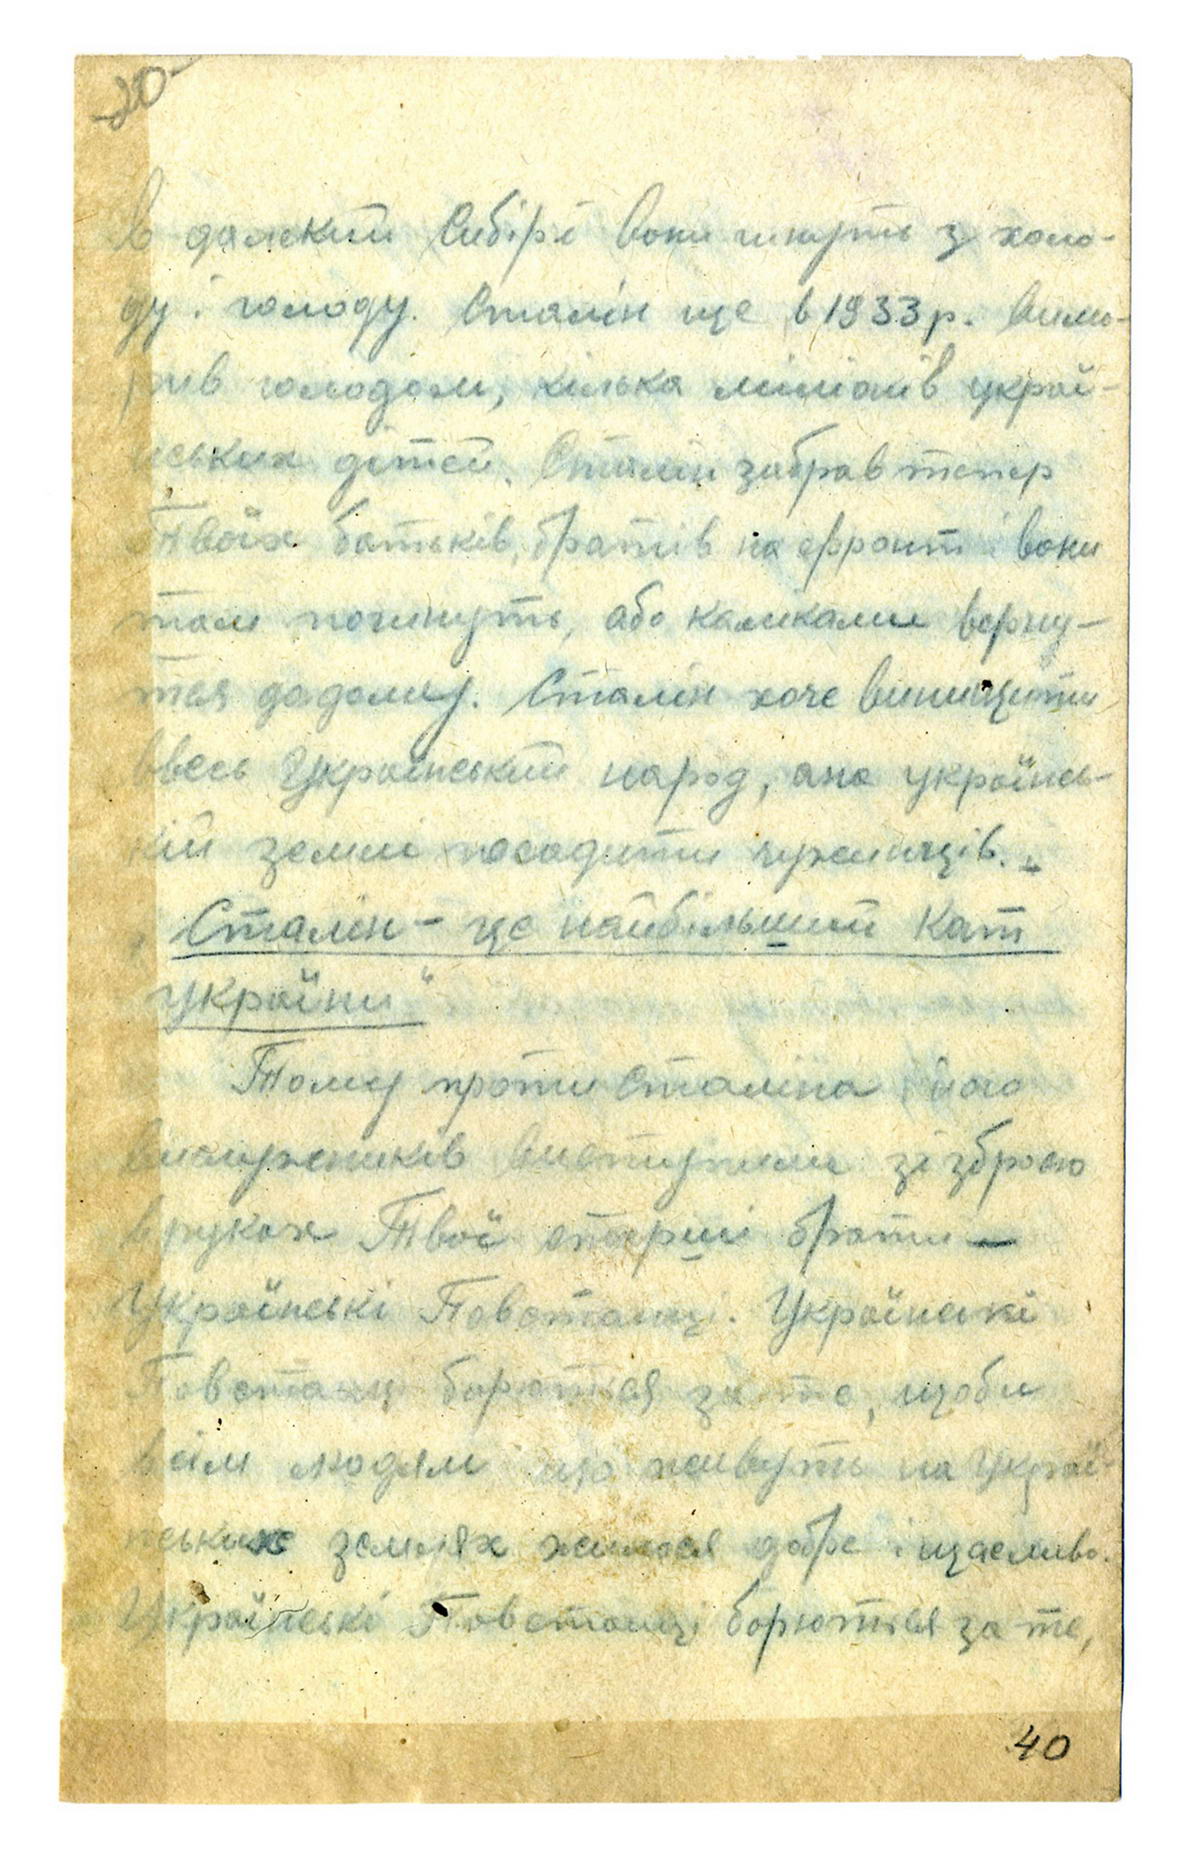 -20-
в далекий Сибірі вони гинуть з холо-
ду і голоду. Сталін ще в 1933 р. вимо-
рив голодом, кілька міліонів украї-
нських дітей. Сталін забрав тепер
Твоїх батьків, братів на фронт і вони
там погинуть, або каліками верну-
ться додому. Сталін хоче винищити
ввесь Український народ, а на українсь-
кій землі посадити чужинців. „
Сталін – це найбільший кат
України“
Тому проти Сталіна і його
вислужників виступили зі зброєю
в руках Твої старші брати —
Українські Повстанці. Українські
Повстанці борються за те, щоби
всім людям що живуть на Украї-
нських землях жилося добре і щасливо.
Українські Повстанці борються за те,
40